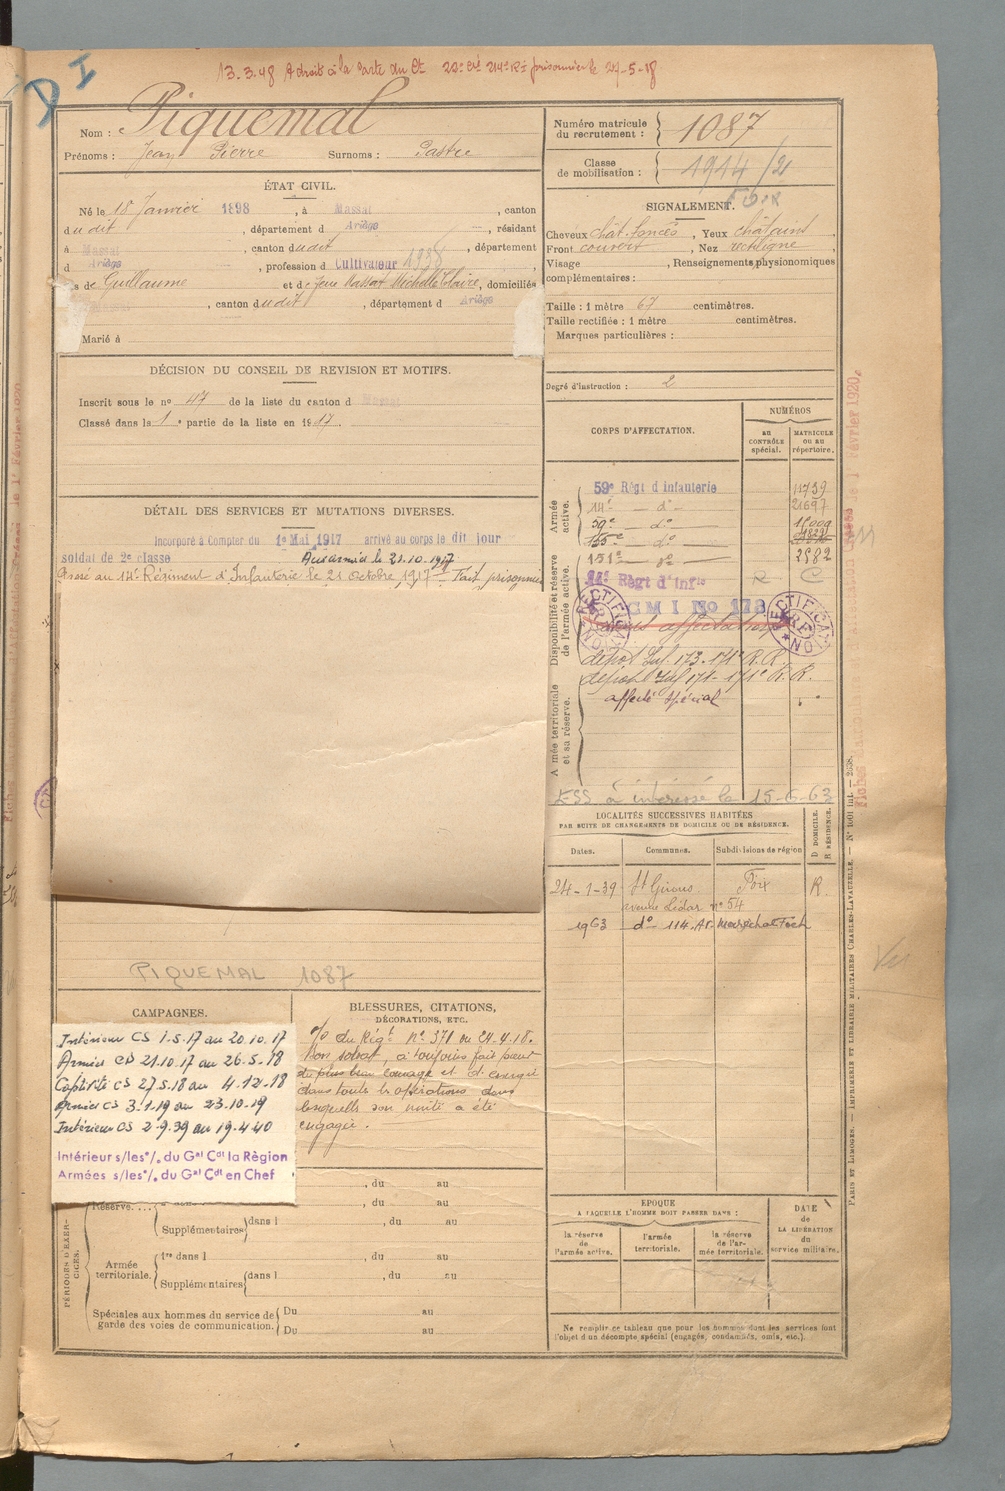 13.3.48 A droit à la Carte du Ct 20e Cie 214e RI prisonnier le 27-5-18
DI
Nom : Piquemal
Prénoms : Jean Pierre Surnoms : Pastre
Numéro matricule
du recrutement : 1087
Classe
de mobilisation : 1914/21
Foix
ÉTAT CIVIL.
Né le 18 Janvier 1898, à Massat, canton
dudit, département d Ariège, résidant
à Massat, canton dudit, département
d Ariège, profession d Cultivateur 1938
s de Guillaume et de Jeune Massat Michelle Claire, domiciliés
, canton dudit, département d Ariège
Marié à
SIGNALEMENT.
Cheveux chât. foncés, Yeux châtains,
Front couvert, Nez rectiligne,
Visage , Renseignements physionomiques
complémentaires :
Taille : 1 mètre 67 centimètres.
Taille rectifiée : 1 mètre centimètres.
Marques particulières :
Degré d'instruction : 2
DÉCISION DU CONSEIL DE REVISION ET MOTIFS.
Inscrit sous le no 47 de la liste du canton d Massat
Classé dans la 1e partie de la liste en 1917.
DÉTAIL DES SERVICES ET MUTATIONS DIVERSES.
Incorporé à Compter du 1e Mai 1917 arrivé au corps le dit jour
soldat de 2e classe Aux armées le 21.10.1917
Passé au 14e Régiment d'Infanterie le 21 Octobre 1917 - Fait prisonnier
CORPS D'AFFECTATION.
NUMÉROS
au
CONTRÔLE
spécial.
MATRICULE
ou au
répertoire.
Armée
active.
59e Régt d'infanterie 11739
14e - do - 21697
59e - do - 15009
155e - do -
151e - do - 3582
Disponibilité et réserve
de l'armée active.
Régt d'Infie R C
RECTIFICATION RF
GMI No 173
RECTIFICATION RF
sans affectation
dépôt Inf. 173-171e R.R.
dépôt Inf 171-171e R.R.
affecté spécial
Armée territoriale
et sa réserve.
ESS à intéressé le 15-6-63
LOCALITÉS SUCCESSIVES HABITÉES
PAR SUITE DE CHANGEMENTS DE DOMICILE OU DE RÉSIDENCE.
Dates. Communes. Subdivisions de région
D DOMICILE.
R RÉSIDENCE.
24-1-39 St Girons Foix R.
avenue no 54
1963 do 114. Av. Maréchal Foch
PIQUEMAL 1087
CAMPAGNES.
Intérieur CS 1-5.17 au 20.10.17
Armées CD 21.10.17 au 26.5.18
Captivité CS 27.5.18 au 4.12.18
Armées CS 3-1.19 au 23.10.19
Intérieur CS 2-9.39 au 19.4.40
Intérieur s/les o/. du Gal Cdt la Région
Armées s/les o/. du Gal Cdt en Chef
BLESSURES, CITATIONS,
DÉCORATIONS, ETC.
o/o du Régt No 371 du 24.4.18.
Bon soldat, a toujours fait preuve
du plus beau courage et d'énergie
dans toutes les opérations dans
lesquelles son unité a été
engagée.
, du au
Réserve.... , du au
Supplémentaires dans l , du au
PÉRIODES D'EXERCICES.
Armée
territoriale.
1re dans l , du au
Supplémentaires dans l , du au
Spéciales aux hommes du service de
garde des voies de communication.
Du au
Du au
ÉPOQUE
A LAQUELLE L'HOMME DOIT PASSER DANS :
la réserve
de
l'armée active.
l'armée
territoriale.
la réserve
de l'ar-
mée territoriale.
DATE
de
LA LIBÉRATION
du
service militaire.
Ne remplir ce tableau que pour les hommes dont les services font
l'objet d'un décompte spécial (engagés, condamnés, omis, etc.).
PARIS ET LIMOGES. — IMPRIMERIE ET LIBRAIRIE MILITAIRES CHARLES-LAVAUZELLE. — No 1001 int. — 2658.
Fiches Matricules d'Affectation Créées le 1er Février 1920.
Vu